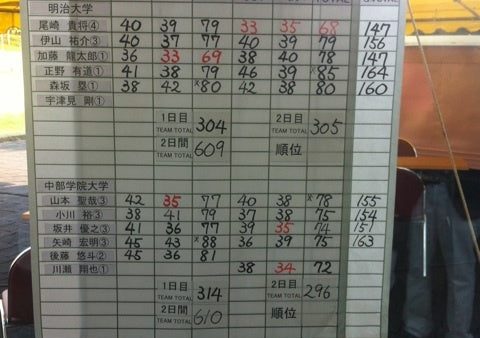 明治大学
尾崎 貴将④ 40 39 79 33 35 68 147
伊山 祐介③ 40 37 77 40 39 79 156
加藤 龍太郎① 36 33 69 38 40 78 147
正野 有道① 41 38 79 46 39 ×85 164
森坂 塁① 38 42 ×80 42 38 80 160
宇津見 剛①
1日目 TEAM TOTAL 304 2日目 TEAM TOTAL 305
2日間 TEAM TOTAL 609 順位
中部学院大学
山本 聖哉③ 42 35 77 40 38 ×78 155
小川 裕③ 38 41 79 37 38 75 154
坂井 優之③ 41 36 77 39 35 74 151
矢崎 宏明③ 45 43 ×88 36 39 75 163
後藤 悠斗② 45 36 81
川瀬 翔也① 38 34 72
1日目 TEAM TOTAL 314 2日目 TEAM TOTAL 296
2日間 TEAM TOTAL 610 順位